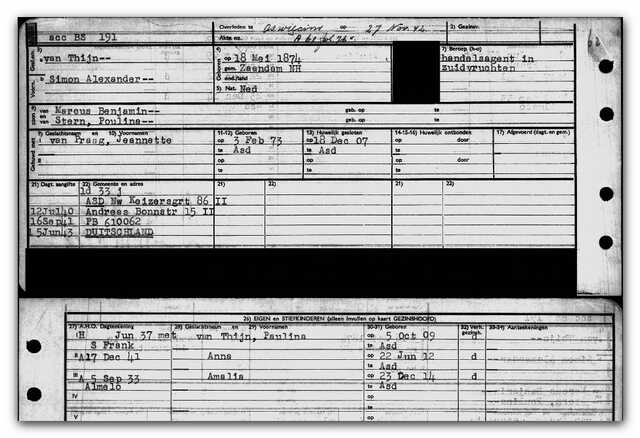 Overleden te Auswitz op 27 Nov. 42 2) Gezinsr.
acc BS 191 Akte no. A
3) 4) 7) Beroep (h-o)
van Thijn-- op 18 Mei 1874 handelsagent in
gem. Zaandam NH zuidvruchten
Simon Alexander-- and./land
5) Nat. Ned
van Marcus Benjamin-- geb. op te
en Stern, Poulina-- geb. op te
9) Geslachtsnaam en 10) Voornamen 11-12) Geboren 13) Huwelijk gesloten 14-15-16) Huwelijk ontbonden 17) Afgevoerd (dagt. en gem.)
van Praag, Jeannette op 3 Feb 73 op 18 Dec 07 op door
te Asd te Asd te
op op op door
te te te
21) Dagt. aangifte 22) Gemeente en adres 21) 22) 21) 22)
id 33 j
ASD Nw Keizersgrt 86 II
12Jul40 Andreas Bonnstr 15 II
16Sep41 PB 610062
15Jun43 DUITSCHLAND
26) EIGEN en STIEFKINDEREN (alleen invullen op kaart GEZINSHOOFD)
27) A.H.O. Dagteekening 28) Geslachtsnaam en 29) Voornamen 30-31) Geboren 32) Verh. gezinsh. 33-34) Aanteekeningen
H Jun 37 met van Thijn, Paulina op 5 Oct 09 d
S Frank te Asd
II A17 Dec 41 Anna op 22 Jun 12 d
te Asd
III A 5 Sep 33 Amalia op 23 Dec 14 d
Almelo te Asd
IV op
te
V op